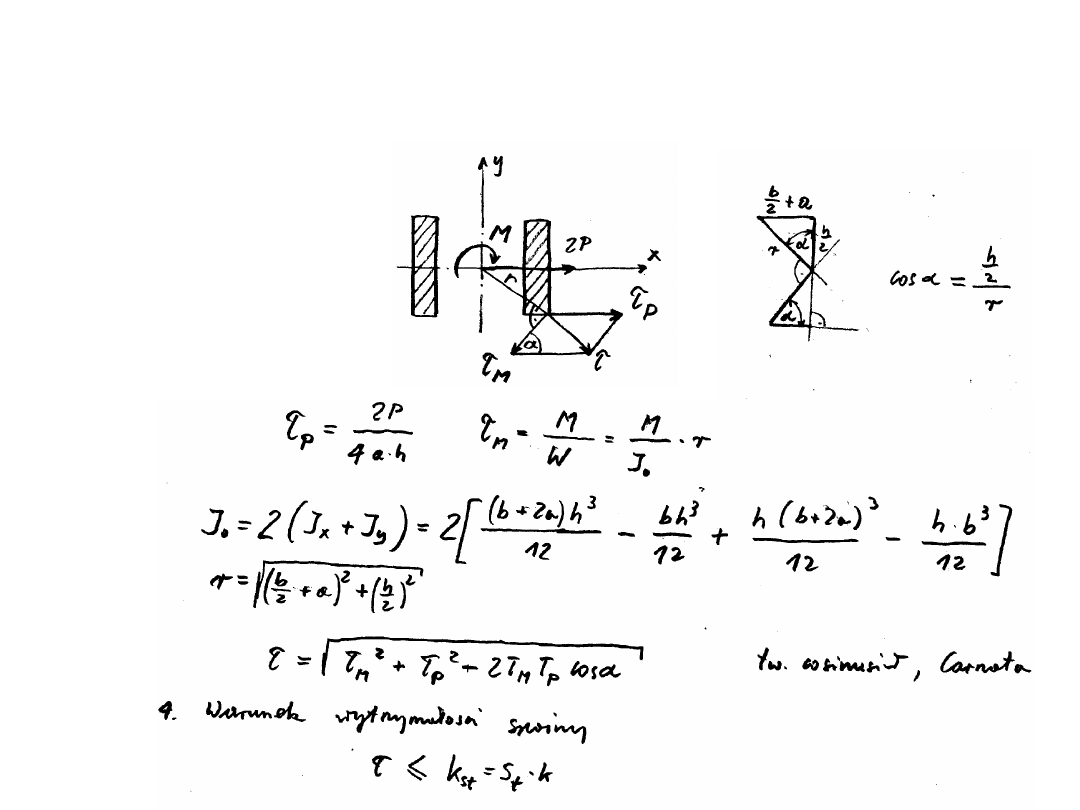 y
M
2P
x
r
τ_P
α
τ_M
τ
b/2 + a
r
α
h/2
α
cos α = (h/2)/r
τ_P = 2P/(4a·h)   τ_M = M/W = M/J₀ · r
J₀ = 2(Jx + Jy) = 2[(b+2a)h³/12 - bh³/12 + h(b+2a)³/12 - h·b³/12]
r = √((b/2 + a)² + (h/2)²)
τ = √(τ_M² + τ_P² - 2τ_M τ_P cosα)   tw. cosinusów, Carnota
4. Warunek wytrzymałości spoiny
τ ≤ k_st = S_t · k